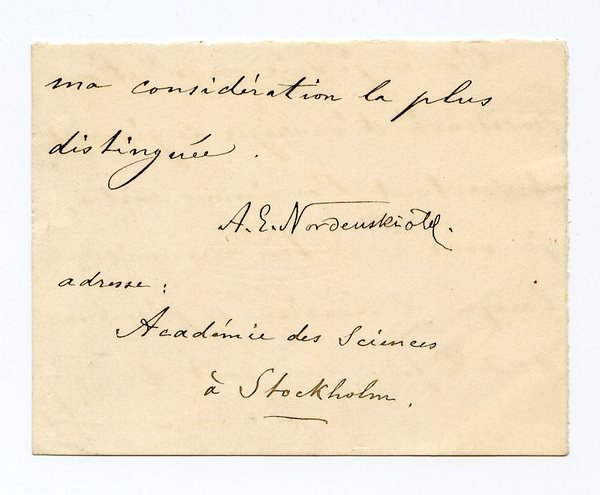 ma considération la plus
distinguée.
A. E. Nordenskiöld.
adresse:
Académie des Sciences
à Stockholm.